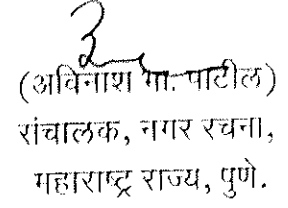 (अविनाश गा. पाटील)
संचालक, नगर रचना,
महाराष्ट्र राज्य, पुणे.